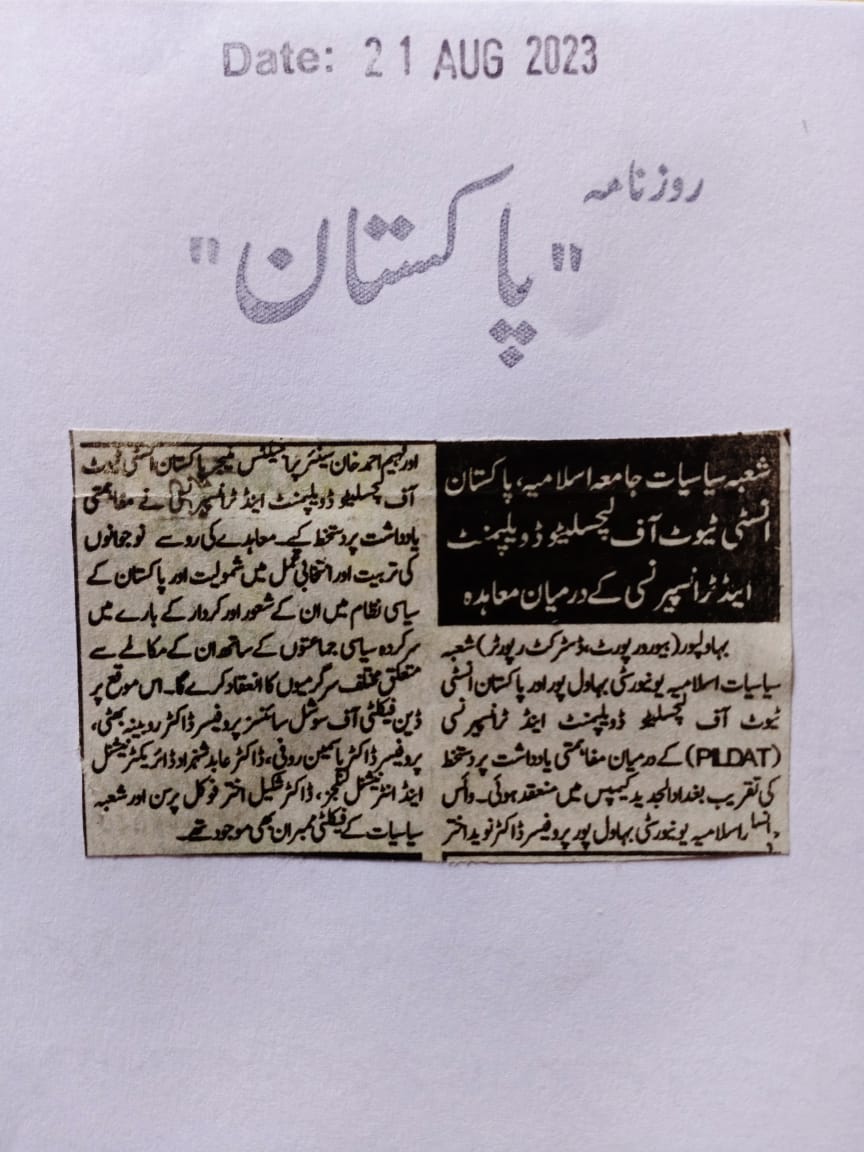 Date: 21 AUG 2023
روزنامہ
"پاکستان"
شعبہ سیاسیات جامعہ اسلامیہ، پاکستان
انسٹی ٹیوٹ آف لیجسلیٹو ڈویلپمنٹ
اینڈ ٹرانسپرنسی کے درمیان معاہدہ
بہاولپور (بیورو رپورٹ، ڈسٹرکٹ رپورٹر) شعبہ
سیاسیات اسلامیہ یونیورسٹی بہاول پور اور پاکستان انسٹی
ٹیوٹ آف لیجسلیٹو ڈویلپمنٹ اینڈ ٹرانسپرنسی
(PILDAT) کے درمیان مفاہمتی یادداشت پر دستخط
کی تقریب بغداد الجدید کیمپس میں منعقد ہوئی۔ وائس
چانسلر اسلامیہ یونیورسٹی بہاول پور پروفیسر ڈاکٹر نوید اختر
اور فہیم احمد خان سینئر پراجیکٹس منیجر پاکستان انسٹی ٹیوٹ
آف لیجسلیٹو ڈویلپمنٹ اینڈ ٹرانسپرنسی نے مفاہمتی
یادداشت پر دستخط کیے۔ معاہدے کی رو سے نوجوانوں
کی تربیت اور انتخابی عمل میں شمولیت اور پاکستان کے
سیاسی نظام میں ان کے شعور اور کردار کے بارے میں
سرکردہ سیاسی جماعتوں کے ساتھ ان کے مکالمے سے
متعلق مختلف سرگرمیوں کا انعقاد کرے گا۔ اس موقع پر
ڈین فیکلٹی آف سوشل سائنسز پروفیسر ڈاکٹر روبینہ بھٹی،
پروفیسر ڈاکٹر یاسمین روفی، ڈاکٹر عابد شہزاد ڈائریکٹر نیشنل
اینڈ انٹرنیشنل لنکجز، ڈاکٹر شکیل اختر فوکل پرسن اور شعبہ
سیاسیات کے فیکلٹی ممبران بھی موجود تھے۔